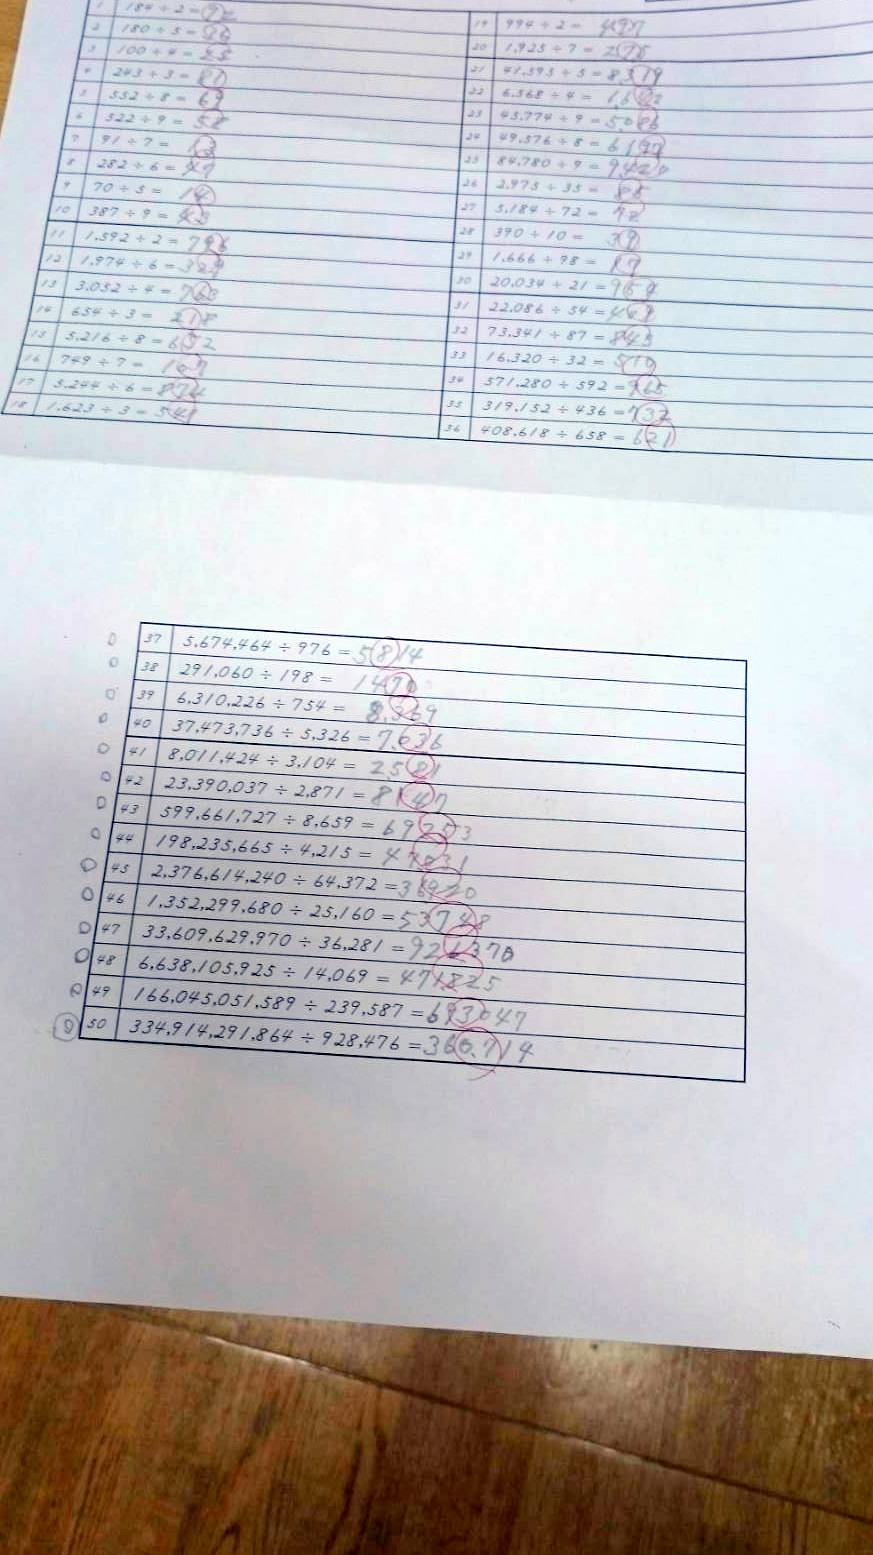 1 184 ÷ 2 = 92
2 180 ÷ 5 = 36
3 100 ÷ 4 = 25
4 243 ÷ 3 = 81
5 552 ÷ 8 = 69
6 522 ÷ 9 = 58
7 91 ÷ 7 = 13
8 282 ÷ 6 = 47
9 70 ÷ 5 = 14
10 387 ÷ 9 = 43
11 1,592 ÷ 2 = 796
12 1,974 ÷ 6 = 329
13 3,052 ÷ 4 = 763
14 654 ÷ 3 = 218
15 5,216 ÷ 8 = 652
16 749 ÷ 7 = 107
17 5,244 ÷ 6 = 874
18 1,623 ÷ 3 = 541
19 994 ÷ 2 = 497
20 1,925 ÷ 7 = 275
21 41,595 ÷ 5 = 8319
22 6,568 ÷ 4 = 1,642
23 45,774 ÷ 9 = 5,086
24 49,576 ÷ 8 = 6197
25 84,780 ÷ 9 = 9420
26 2,975 ÷ 35 = 85
27 5,184 ÷ 72 = 72
28 390 ÷ 10 = 39
29 1,666 ÷ 98 = 17
30 20,034 ÷ 21 = 954
31 22,086 ÷ 54 = 409
32 73,341 ÷ 87 = 843
33 16,320 ÷ 32 = 510
34 571,280 ÷ 592 = 965
35 319,152 ÷ 436 = 732
36 408,618 ÷ 658 = 621
37 5,674,464 ÷ 976 = 5814
38 291,060 ÷ 198 = 1470
39 6,310,226 ÷ 754 = 8,369
40 37,473,736 ÷ 5,326 = 7,636
41 8,011,424 ÷ 3,104 = 2581
42 23,390,037 ÷ 2,871 = 8147
43 599,661,727 ÷ 8,659 = 69253
44 198,235,665 ÷ 4,215 = 47031
45 2,376,614,240 ÷ 64,372 = 36920
46 1,352,299,680 ÷ 25,160 = 53748
47 33,609,629,970 ÷ 36,281 = 926370
48 6,638,105,925 ÷ 14,069 = 471825
49 166,045,051,589 ÷ 239,587 = 693047
50 334,914,291,864 ÷ 928,476 = 360,714